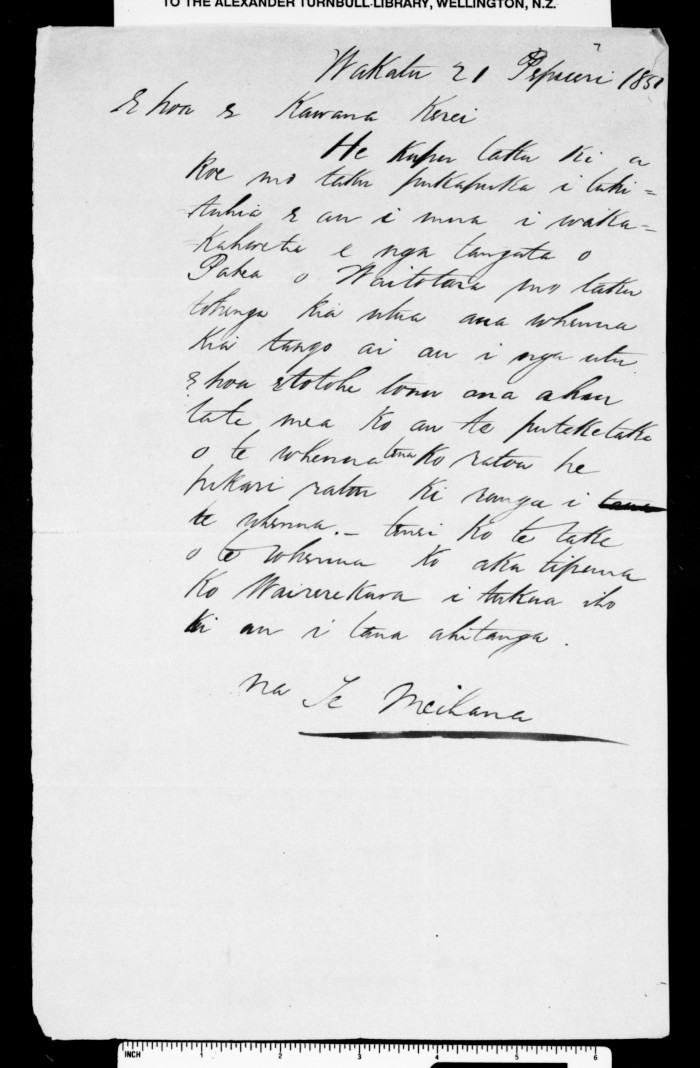 TO THE ALEXANDER TURNBULL LIBRARY, WELLINGTON, N.Z.
Wakatu 21 Pepueri 1851
E hoa e Kawana Kerei
He kupu taku ki a
koe mo taku pukapuka i tuhi=
tuhia e au i mua i waka=
Kahoretia e nga tangata o
Patea o Waitotara mo taku
tohenga kia utua ana whenua
Kia tango ai au i nga utu.
E hoa e totohe tonu ana ahau
ta te mea Ko au te puteketake
o te whenua tena Ko ratou he
pikari ratou Ki runga i
te whenua. – tenei Ko te take
o te whenua Ko aku tipuna
Ko Wairerekura i tukua iho
ki au i tana ahitanga.
na Te Meihana
INCH 1 2 3 4 5 6